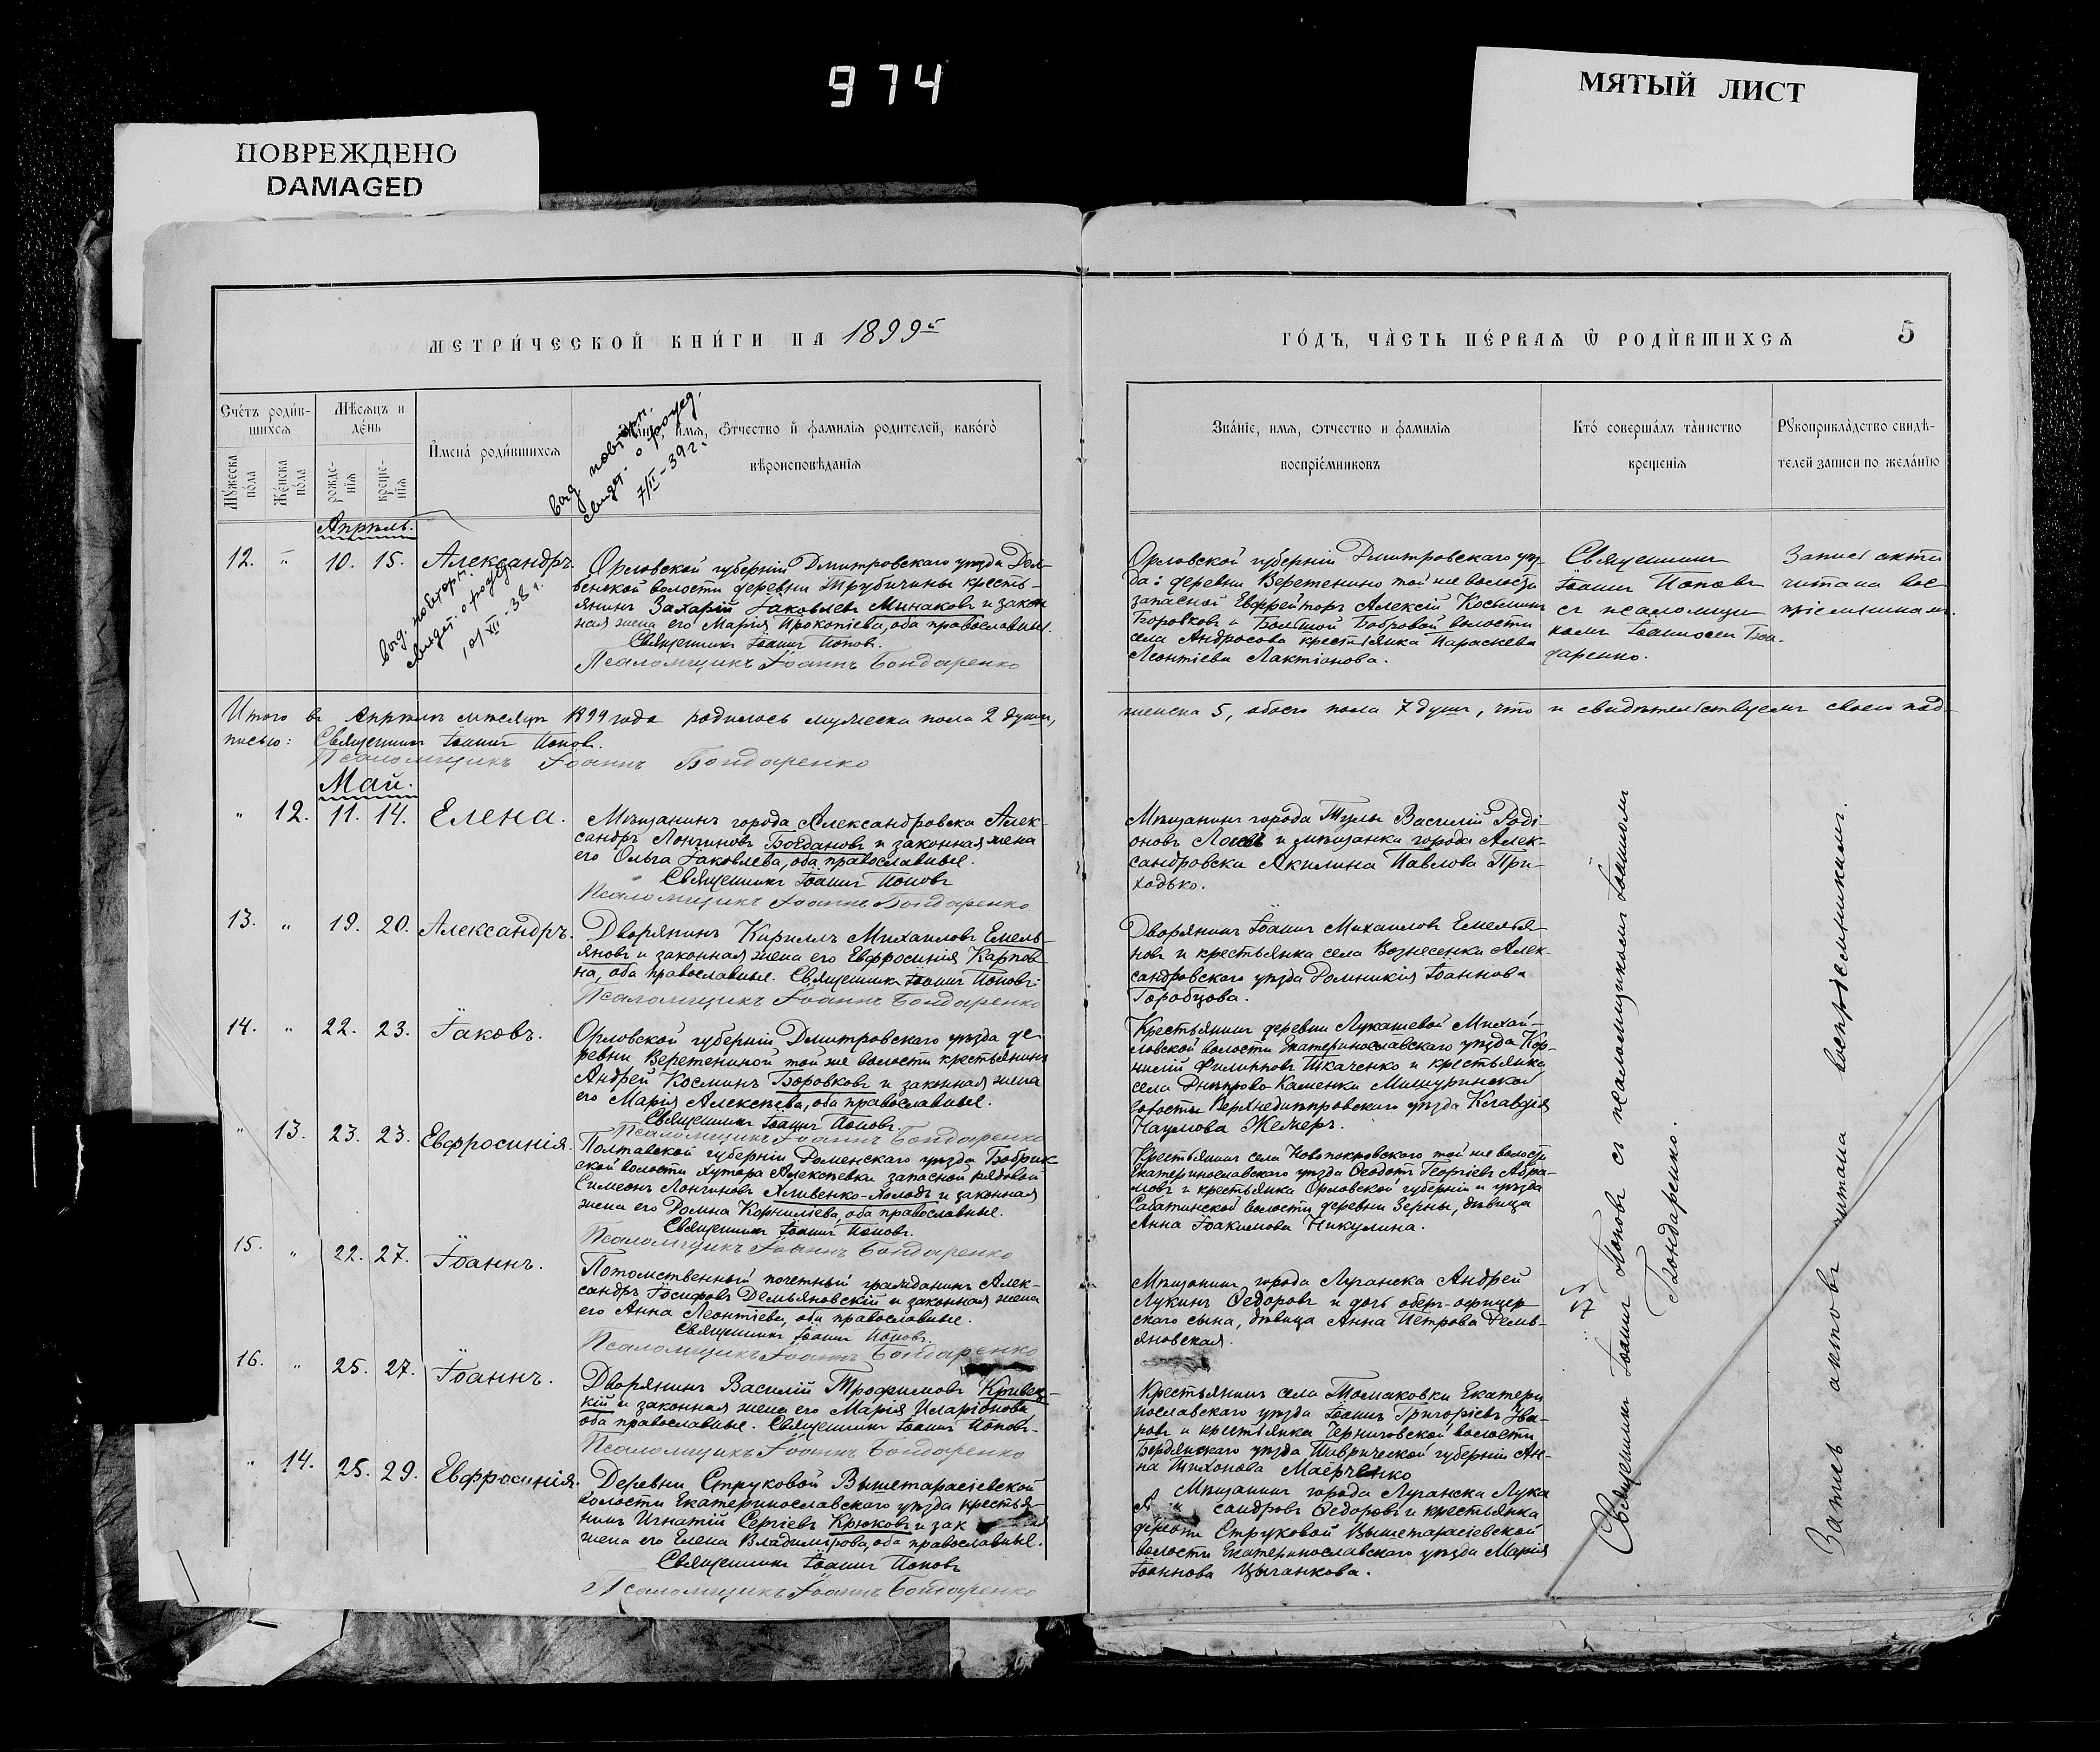 974
МЯТЫЙ ЛИСТ
ПОВРЕЖДЕНО
DAMAGED
МЕТРИ́ЧЕСКОЙ КНИ́ГИ НА 1899й
ГО́ДЪ, ЧА́СТЬ ПЕ́РВАЯ Ѿ РОДИ́ВШИХСЯ
5
Сче́тъ роди́в-
шихся
Мѣ́сяцъ и
де́нь
Му́жеска по́ла
Же́нска по́ла
рожде-
нія
креще-
нія
И́мена́ роди́вшихся
Зва́ніе, и́мя, о́тчество и́ фами́лія роди́телей, како́гѡ
вѣроисповѣ́данія
Зва́ніе, имя, о́тчество и фами́лія
воспріе́мниковъ
Кто́ соверша́лъ та́инство
креще́нія
Рукоприкла́дство свидѣ́-
телей записи по жела́нію
выд. повторн.
свидет. о рожд.
7/II-39 г.
Апрѣль.
12. " 10. 15. Александръ.
выд. повторн.
свидет. о рожд.
10/XII-38 г.
Орловской губерніи Дмитровскаго уѣзда Дол-
бенькой волости деревни Трубичины кресть-
янинъ Захарій Іаковлевъ Минаковъ и закон
ная жена его Марія Прокопіева, оба православные.
Священникъ Іоаннъ Поповъ.
Псаломщикъ Іоаннъ Бондаренко
Орловской губерніи Дмитровскаго уѣз-
да: деревни Веретенино той же волости
запасной Ефрейторъ Алексій Косьминъ
Боровковъ и Большой Бобровой волости
села Андросова крестьянка Параскева
Леонтіева Лактіонова.
Священникъ
Іоаннъ Поповъ
съ псаломщи
комъ Іоанномъ Бон-
даренко.
Запись акта
читана вос-
пріемникамъ.
Итого въ Апрѣлѣ мѣсяцѣ 1899 года родилось мужеска пола 2 души,
женска 5, обоего пола 7 душъ, что и свидѣтельствуемъ своею под-
писью: Священникъ Іоаннъ Поповъ.
Псаломщикъ Іоаннъ Бондаренко
Май.
" 12. 11. 14. Елена.
Мѣщанинъ города Александровска Алек-
сандръ Лонгиновъ Богдановъ и законная жена
его Ольга Іаковлева, оба православные.
Священникъ Іоаннъ Поповъ
Псаломщикъ Іоаннъ Бондаренко
Мѣщанинъ города Тулы Василій Роді-
оновъ Лосевъ и мѣщанка города Алек-
сандровска Акилина Павлова При-
ходько.
13. " 19. 20. Александръ.
Дворянинъ Кириллъ Михаиловъ Емель-
яновъ и законная жена его Евфросинія Карпов-
на, оба православные. Священникъ Іоаннъ Поповъ.
Псаломщикъ Іоаннъ Бондаренко
Дворянинъ Іоаннъ Михаиловъ Емелья-
новъ и крестьянка села Вознесенки Алек-
сандровскаго уѣзда Домникія Іоаннова
Горобцова.
14. " 22. 23. Іаковъ.
Орловской губерніи Дмитровскаго уѣзда де-
ревни Веретениной той же волости крестьянинъ
Андрей Косминъ Боровковъ и законная жена
его Марія Алексѣева, оба православные.
Священникъ Іоаннъ Поповъ.
Псаломщикъ Іоаннъ Бондаренко
Крестьянинъ деревни Лукашевой Михай-
ловской волости Екатеринославскаго уѣзда Кор-
нилій Филипповъ Ткаченко и крестьянка
села Днѣпрово-Каменки Мишуринской
волости Верхнеднѣпровскаго уѣзда Клавдія
Наумова Жежеръ.
" 13. 23. 23. Евфросинія.
Полтавской губерніи Роменскаго уѣзда Бобрик
ской волости хутора Алексѣевки запасной рядовой
Симеонъ Лонгиновъ Хливенко-Холодъ и законная
жена его Домна Корниліева, оба православные.
Священникъ Іоаннъ Поповъ.
Псаломщикъ Іоаннъ Бондаренко
Крестьянинъ села Новопокровскаго той же волости
Екатеринославскаго уѣзда Ѳеодотъ Георгіевъ Абра-
мовъ и крестьянка Орловской губерніи и уѣзда
Сабатинской волости деревни Зерны, дѣвица
Анна Іоакимова Никулина.
15. " 22. 27. Іоаннъ.
Потомственный почетный гражданинъ Алек-
сандръ Іосифовъ Демьяновскій и законная жена
его Анна Леонтіева, оба православные.
Священникъ Іоаннъ Поповъ.
Псаломщикъ Іоаннъ Бондаренко
Мѣщанинъ города Луганска Андрей
Лукинъ Ѳедоровъ и дочь оберъ-офицер
скаго сына, дѣвица Анна Петрова Демь-
яновская.
16. " 25. 27. Іоаннъ.
Дворянинъ Василій Трофимовъ Кривец-
кій и законная жена его Марія Иларіонова
оба православные. Священникъ Іоаннъ Поповъ.
Псаломщикъ Іоаннъ Бондаренко
Крестьянинъ села Томаковки Екатери
нославскаго уѣзда Іоаннъ Григорьевъ Ува-
ровъ и крестьянка Черниговской волости
Бердянскаго уѣзда Таврической губерніи Ан-
на Тихонова Маерченко
" 14. 25. 29. Евфросинія.
Деревни Струковой Вышетарасіевской
волости Екатеринославскаго уѣзда крестья-
нинъ Игнатій Сергіевъ Крюковъ и зак ая
жена его Елена Владимірова, оба православные.
Священникъ Іоаннъ Поповъ
Псаломщикъ Іоаннъ Бондаренко
Мѣщанинъ города Луганска Лука
сандровъ Ѳедоровъ и крестьянка
деревни Струковой Вышетарасіевской
волости Екатеринославскаго уѣзда Марія
Іоаннова Цыганкова.
Священникъ Іоаннъ Поповъ съ псаломщикомъ Іоанномъ
Бондаренко.
17
Запись актовъ читана воспріемникамъ.